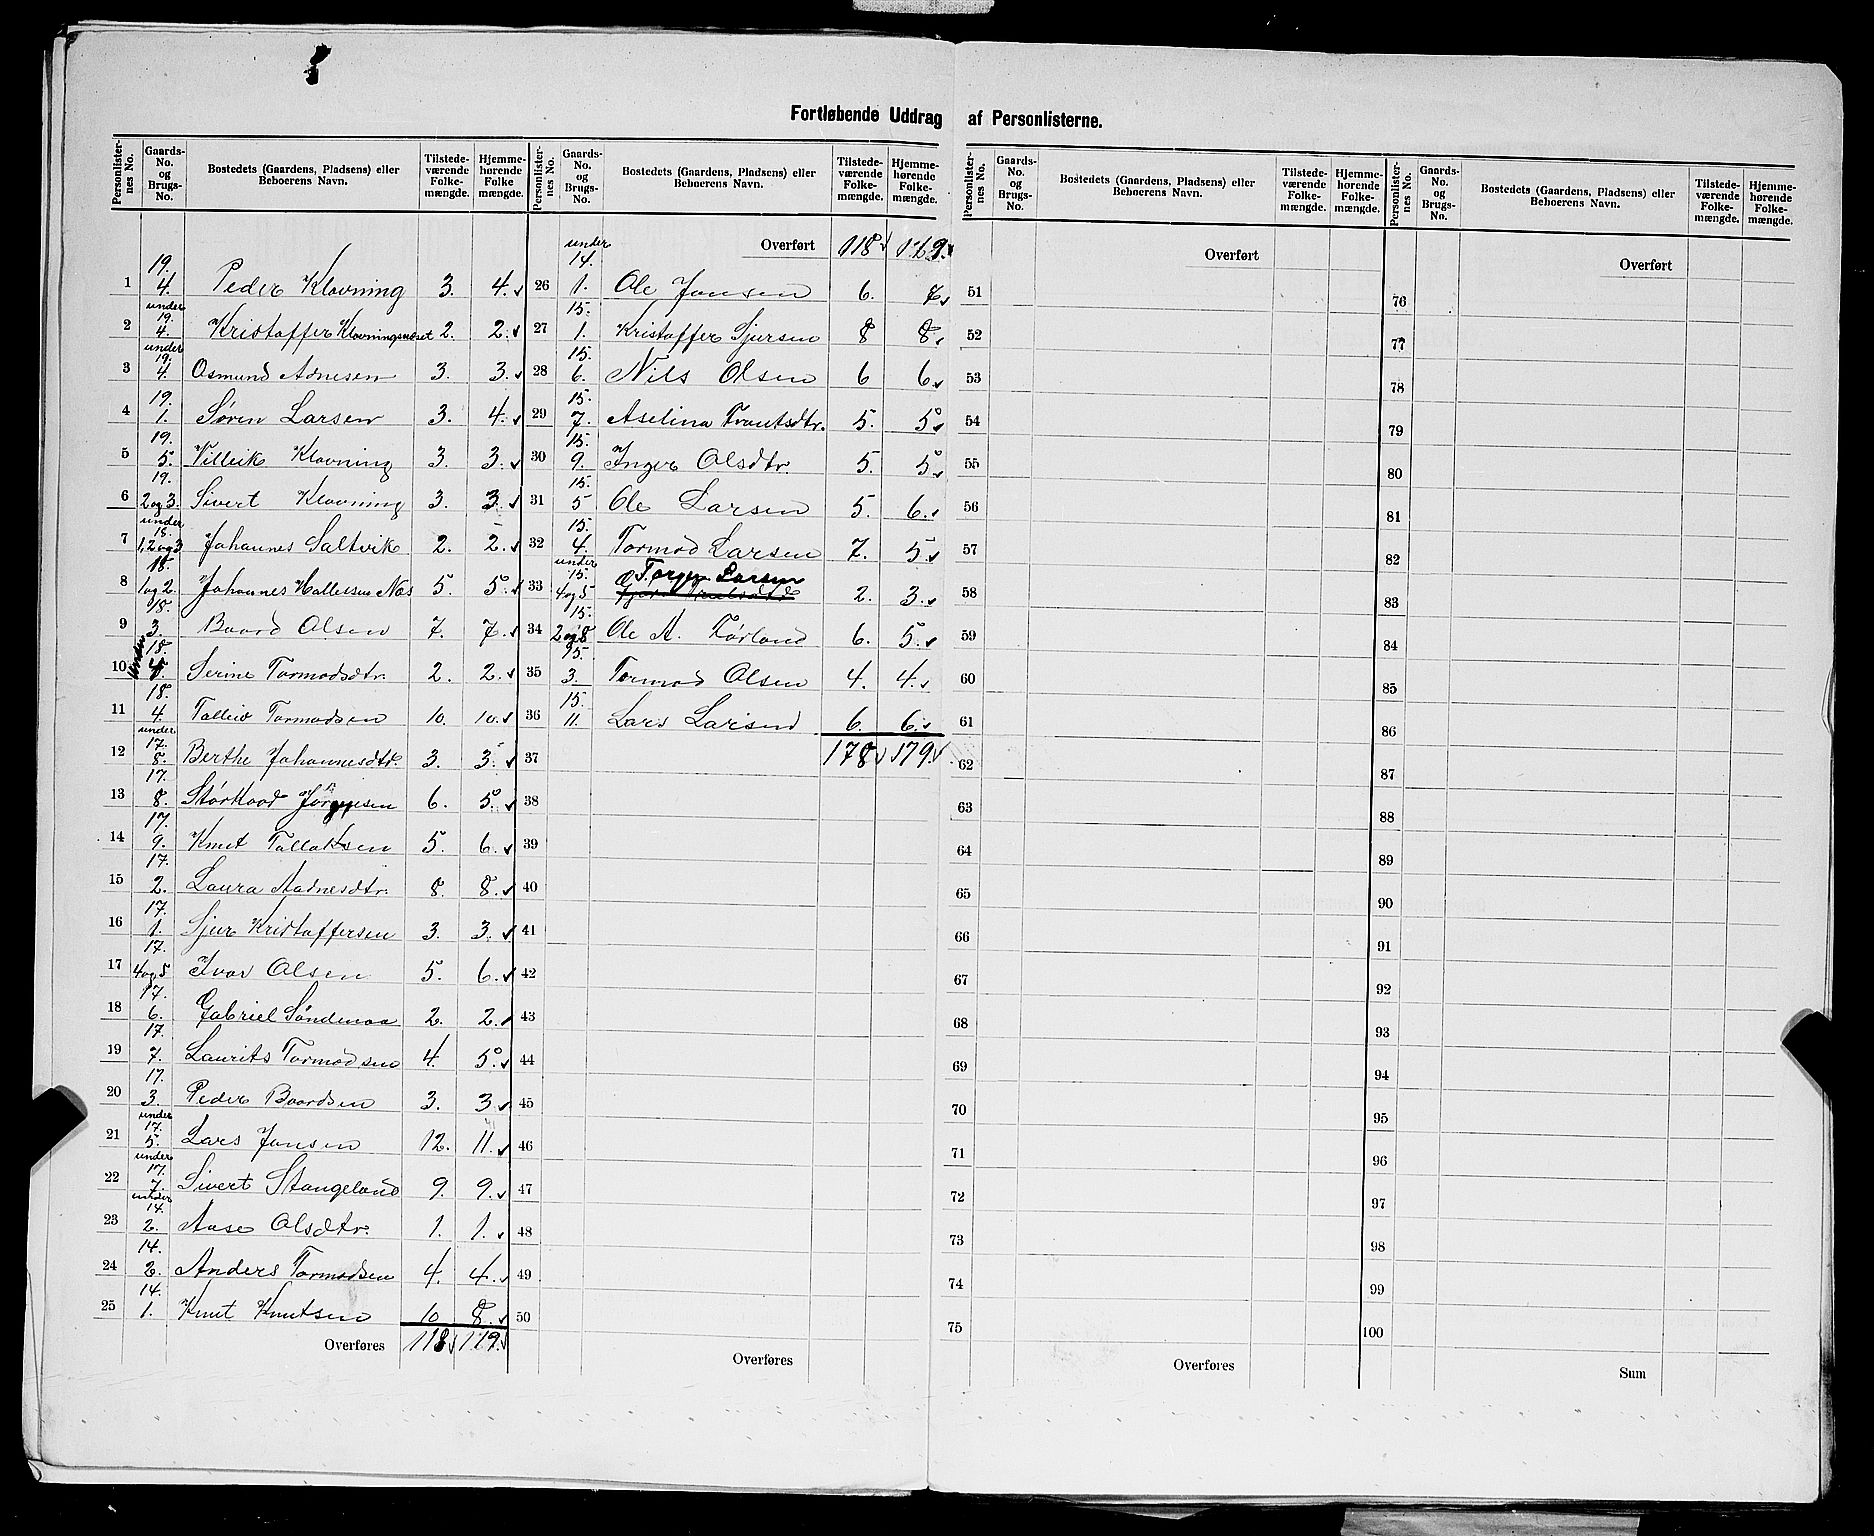 Fortløbende Uddrag af Personlisterne.
Personlister-nes No. | Gaards-No. og Brugs-No. | Bostedets (Gaardens, Pladsens) eller Beboerens Navn. | Tilstede-værende Folke-mængde. | Hjemme-hørende Folke mængde.
1 | 19. 4. | Peder Klovning | 3. | 4.
2 | under 19. 4. | Kristoffer Klovningsneset | 2. | 2.
3 | under 19. 4. | Osmund Adnesen | 3. | 3.
4 | 19. 1. | Søren Larsen | 3. | 4.
5 | 19. 5. | Villeik Klovning | 3. | 3.
6 | 19. 2 og 3. | Sivert Klovning | 3. | 3.
7 | under 18. 1, 2 og 3 | Johannes Saltvik | 2. | 2.
8 | 18. 1 og 2. | Johannes Hallesens Næs | 5. | 5.
9 | 18. 3. | Baard Olsen | 7. | 7.
10 | under 18. 4. | Serine Tormodsdtr. | 2. | 2.
11 | 18. 4. | Talleiv Tormodsen | 10. | 10.
12 | under 17. 8. | Berthe Johannesdtr. | 3. | 3.
13 | 17. 8. | Størkaad Jørgensen | 6. | 5.
14 | 17. 9. | Knut Tallaksen | 5. | 6.
15 | 17. 2. | Laura Aadnesdtr. | 8. | 8.
16 | 17. 1. | Sjur Kristoffersen | 3. | 3.
17 | 17. 4 og 5 | Ivar Olsen | 5. | 6.
18 | 17. 6. | Gabriel Søndenaa | 2. | 2.
19 | 17. 7. | Laurits Tormodsen | 4. | 5.
20 | 17. 3. | Peder Baardsen | 3. | 3.
21 | under 17. 5. | Lars Jansen | 12. | 11.
22 | under 17. 7. | Sivert Stangeland | 9. | 9.
23 | under 14. 2. | Aase Olsdtr. | 1. | 1.
24 | 14. 2. | Anders Tormodsen | 4. | 4.
25 | 14. 1. | Knut Knutsen | 10 | 8.
Overføres | 118 | 119.
Personlister-nes No. | Gaards-No. og Brugs-No. | Bostedets (Gaardens, Pladsens) eller Beboerens Navn. | Tilstede-værende Folke-mængde. | Hjemme-hørende Folke-mængde.
Overført | 118 | 119.
26 | under 14. 1. | Ole Jansen | 6. |
27 | 15. 1. | Kristoffer Sjursen | 8 | 8.
28 | 15. 6. | Nils Olsen | 6 | 6
29 | 15. 7. | Aselina Trautsdtr. | 5. | 5
30 | 15. 9. | Inger Olsdtr. | 5. | 5
31 | 15. 5 | Ole Larsen | 5. | 6.
32 | 15. 4. | Tormod Larsen | 7. | 5
33 | under 15. 4 og 5 | Torger Larsen | 2. | 3.
34 | 15. 2 og 8 | Ole A. Førland | 6. | 5.
35 | 15. 3. | Tormod Olsen | 4. | 4.
36 | 15. 11. | Lars Larsen | 6. | 6.
178 | 179.
37
38
39
40
41
42
43
44
45
46
47
48
49
50
Overføres
Personlister-nes No. | Gaards-No. og Brugs-No. | Bostedets (Gaardens, Pladsens) eller Beboerens Navn. | Tilstede-værende Folke-mængde. | Hjemme-hørende Folke-mængde.
Overført
51
52
53
54
55
56
57
58
59
60
61
62
63
64
65
66
67
68
69
70
71
72
73
74
75
Overføres
Personlister-nes No. | Gaards-No. og Brugs-No. | Bostedets (Gaardens, Pladsens) eller Beboerens Navn. | Tilstede-værende Folke-mængde. | Hjemme-hørende Folke-mængde.
Overført
76
77
78
79
80
81
82
83
84
85
86
87
88
89
90
91
92
93
94
95
96
97
98
99
100
Sum